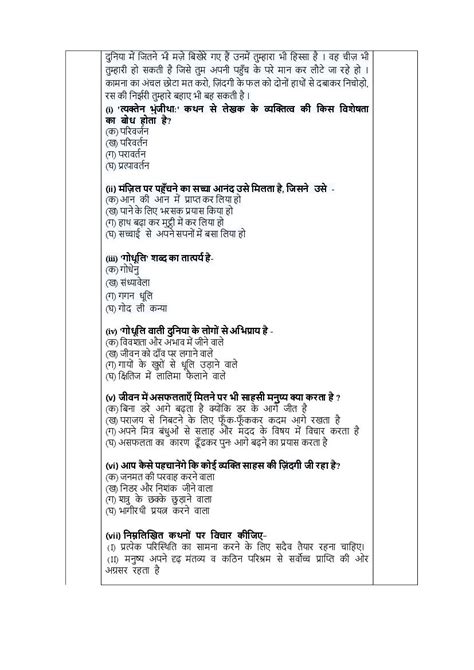 दुनिया में जितने भी मज़े बिखेरे गए हैं उनमें तुम्हारा भी हिस्सा है । वह चीज़ भी
तुम्हारी हो सकती है जिसे तुम अपनी पहुँच के परे मान कर लौटे जा रहे हो ।
कामना का अंचल छोटा मत करो, ज़िंदगी के फल को दोनों हाथों से दबाकर निचोड़ो,
रस की निर्झरी तुम्हारे बहाए भी बह सकती है ।
(i) 'त्यक्तेन भुंजीथा:' कथन से लेखक के व्यक्तित्व की किस विशेषता
का बोध होता है?
(क) परिवर्जन
(ख) परिवर्तन
(ग) परावर्तन
(घ) प्रत्यावर्तन
(ii) मंज़िल पर पहुँचने का सच्चा आनंद उसे मिलता है, जिसने उसे -
(क) आन की आन में प्राप्त कर लिया हो
(ख) पाने के लिए भरसक प्रयास किया हो
(ग) हाथ बढ़ा कर मुट्ठी में कर लिया हो
(घ) सच्चाई से अपने सपनों में बसा लिया हो
(iii) 'गोधूलि' शब्द का तात्पर्य है-
(क) गोधेनु
(ख) संध्यावेला
(ग) गगन धूलि
(घ) गोद ली कन्या
(iv) 'गोधूलि वाली दुनिया के लोगों से अभिप्राय है -
(क) विवशता और अभाव में जीने वाले
(ख) जीवन को दाँव पर लगाने वाले
(ग) गायों के खुरों से धूलि उड़ाने वाले
(घ) क्षितिज में लालिमा फैलाने वाले
(v) जीवन में असफलताएँ मिलने पर भी साहसी मनुष्य क्या करता है ?
(क) बिना डरे आगे बढ़ता है क्योंकि डर के आगे जीत है
(ख) पराजय से निबटने के लिए फूँक-फूँककर कदम आगे रखता है
(ग) अपने मित्र बंधुओं से सलाह और मदद के विषय में विचार करता है
(घ) असफलता का कारण ढूँढकर पुनः आगे बढ़ने का प्रयास करता है
(vi) आप कैसे पहचानेंगे कि कोई व्यक्ति साहस की ज़िंदगी जी रहा है?
(क) जनमत की परवाह करने वाला
(ख) निडर और निशंक जीने वाला
(ग) शत्रु के छक्के छुड़ाने वाला
(घ) भागीरथी प्रयत्न करने वाला
(vii) निम्नलिखित कथनों पर विचार कीजिए–
(I) प्रत्येक परिस्थिति का सामना करने के लिए सदैव तैयार रहना चाहिए।
(II) मनुष्य अपने दृढ़ मंतव्य व कठिन परिश्रम से सर्वोच्च प्राप्ति की ओर
अग्रसर रहता है